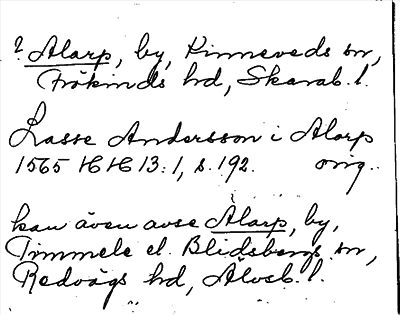 ? Alarp, by, Kinneveds sn,
Frökinds hd, Skarab. l.
Lasse Andersson i Alarp
1565 HH 13:1, s. 192. orig.
kan även avse Älarp, by,
Timmele el. Blidsbergs sn,
Redvägs hd, Älvsb. l.